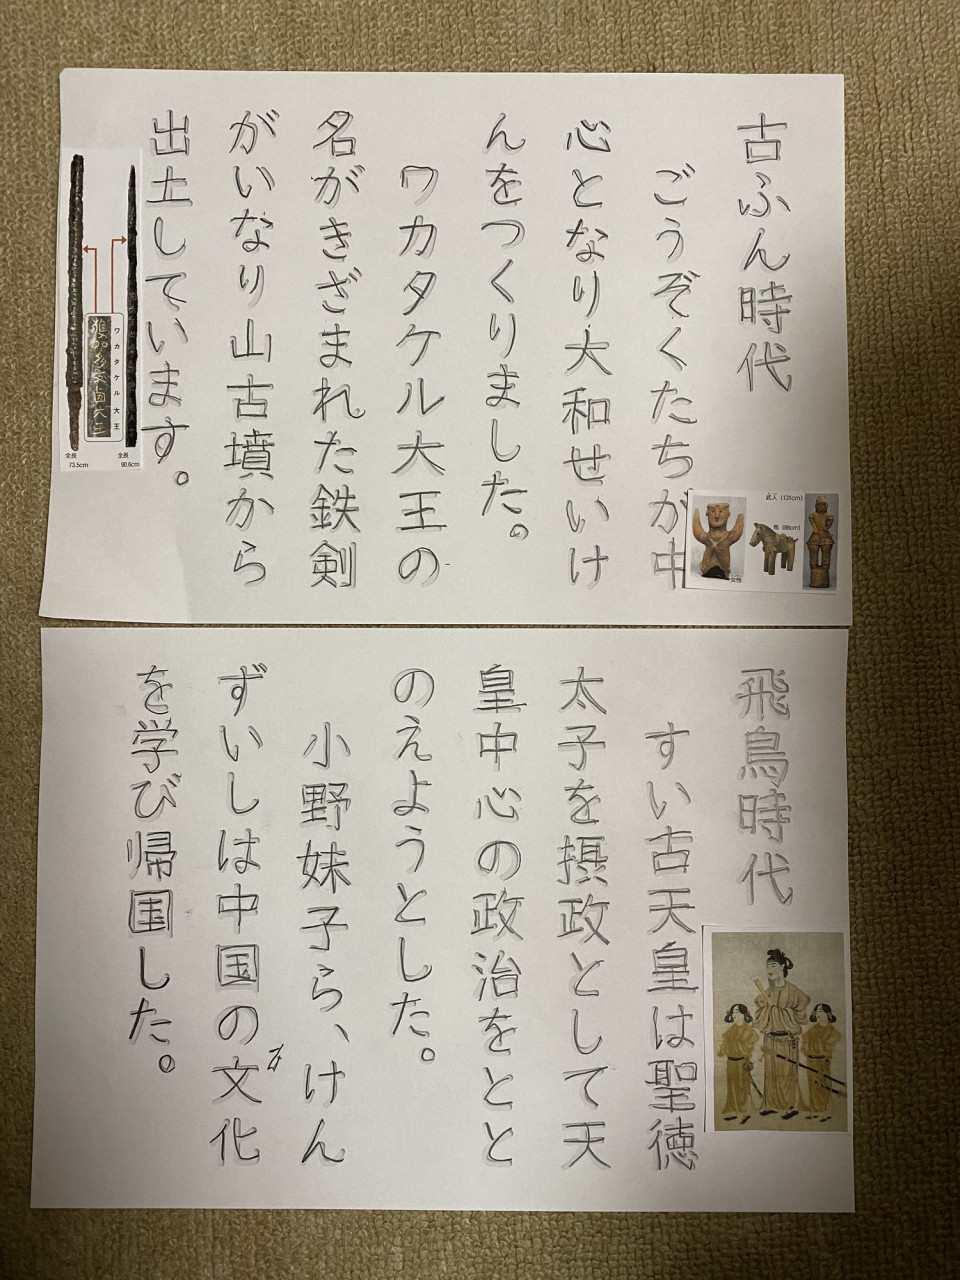 古ふん時代
ごうぞくたちが中
心となり大和せいけ
んをつくりました。
ワカタケル大王の
名がきざまれた鉄剣
がいなり山古墳から
出土しています。
武人（131cm）
馬（88cm）
女性
ワカタケル大王
全長
90.6cm
全長
73.5cm
飛鳥時代
すい古天皇は聖徳
太子を摂政として天
皇中心の政治をとと
のえようとした。
小野妹子ら、けん
ずいしは中国の文化
を学び帰国した。